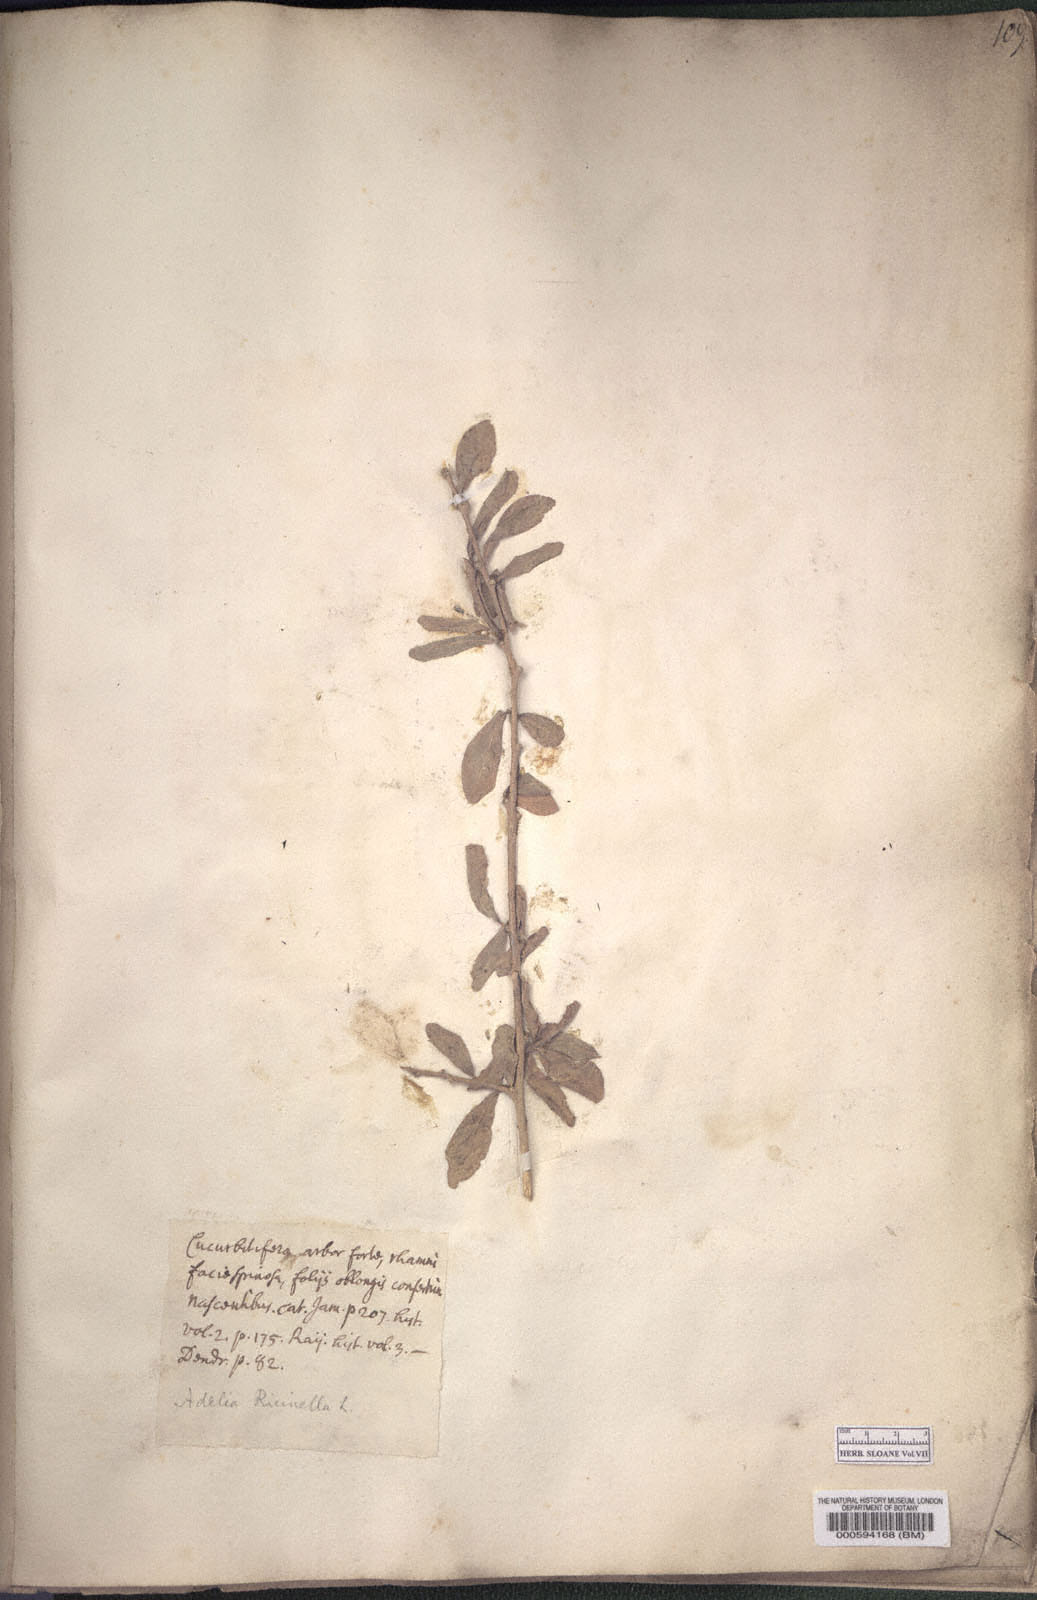 109
Cucurbitifera, arbor forte, rhamni
facie spinosa, folijs oblongis confertim
nascentibus. cat. Jam. p 207. hist.
vol. 2. p. 175. Raij. hist. vol. 3. —
Dendr. p. 82.
Adelia Ricinella L.
HERB. SLOANE Vol. VII
THE NATURAL HISTORY MUSEUM, LONDON
DEPARTMENT OF BOTANY
000594168 (BM)